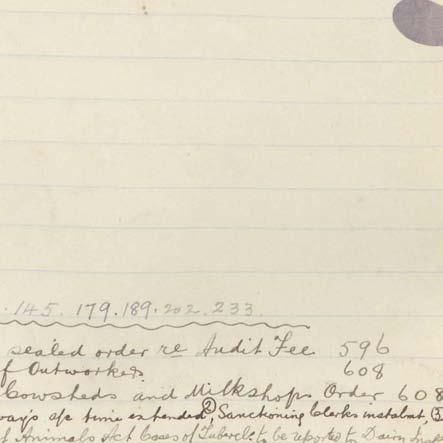 . 145. 179. 189. 202. 233.
sealed order re Audit Fee 596
f Outworkers 608
Cowsheds and Milkshops Order 608
ways &c time extended, ② Sanctioning Clerks instalmt, (3
f Animals Act Cases of Tubercl: to be reported to Dairy